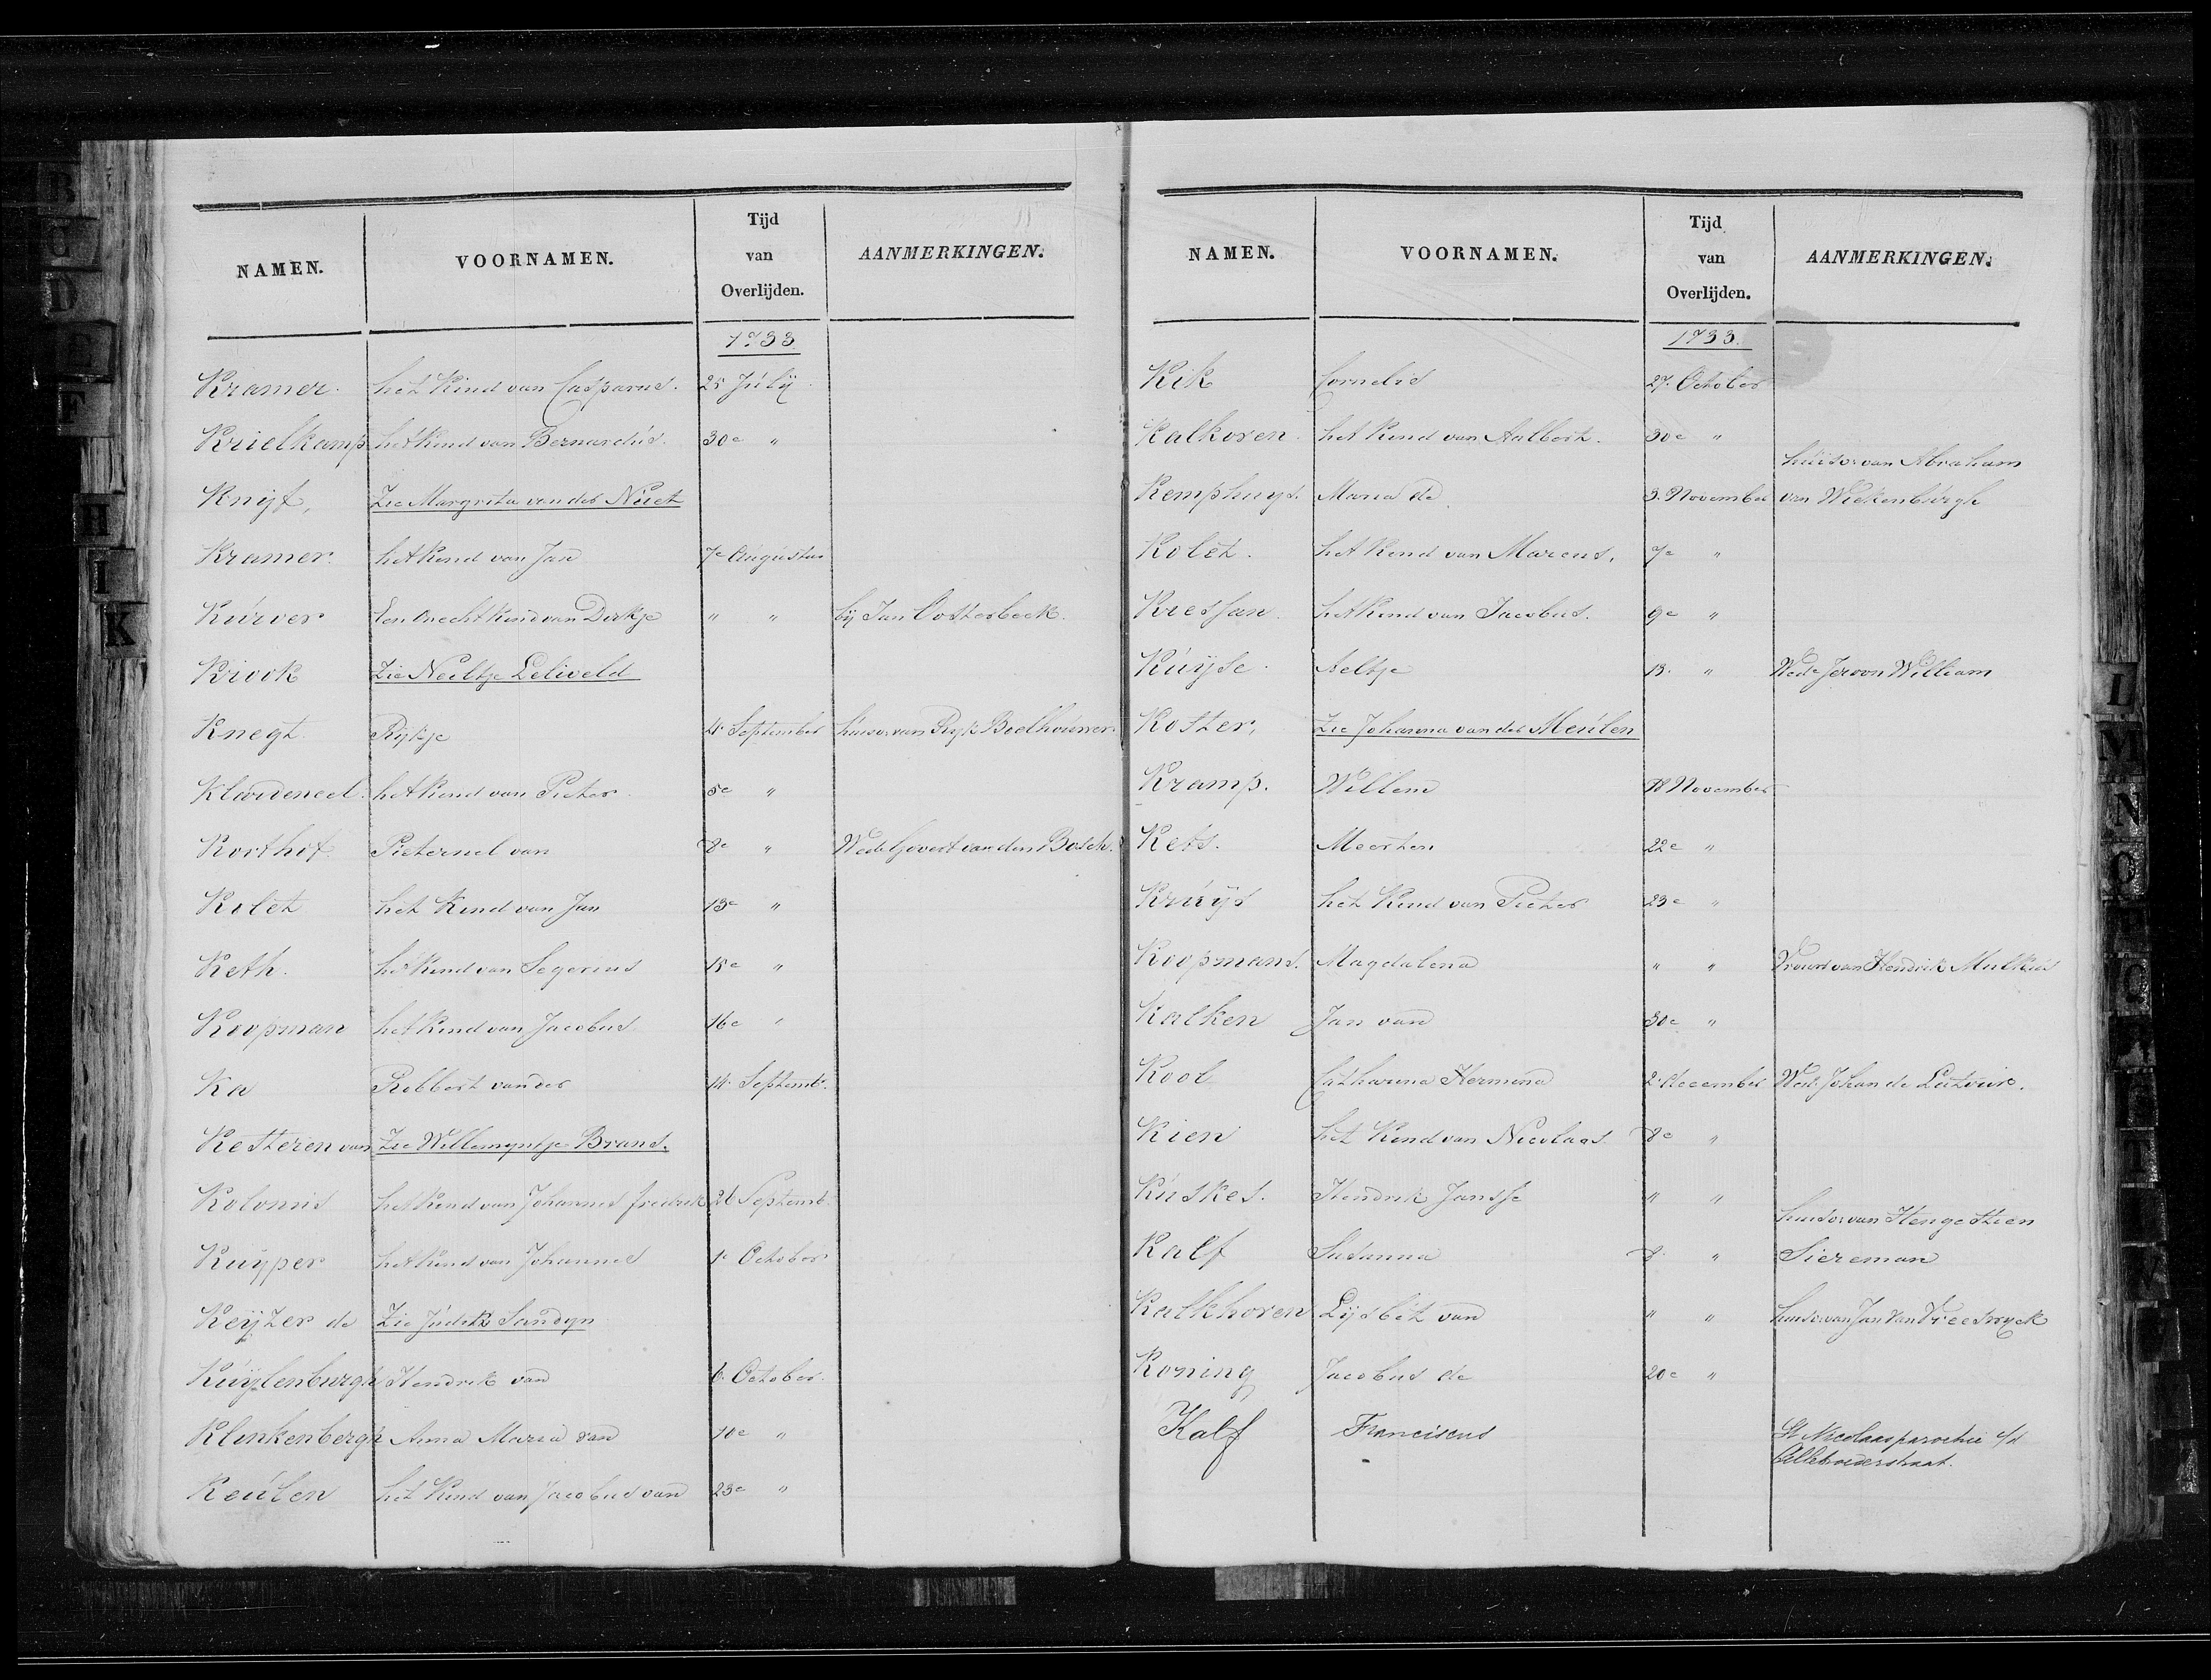 NAMEN. VOORNAMEN. Tijd van Overlijden. AANMERKINGEN.
1733
Kramer. het Kind van Casparus. 25 July
Krielkamp het Kind van Bernardús. 30e "
Knijf, Zie Margreta van der Núet
Kramer. het Kind van Jan 7e Augustus
Kúrver Een Onecht Kind van Dirkje " " bij Jan Oosterbeek.
Krook Zie Neeltje Leliveld
Knegt. Rykje 4. September huisv: van Ryk Beelhouwer.
het Kind van Pieter. 5e "
Korthof. Pieternel van 8e " Wede Govert van den Bosch.
Kolet het Kind van Jan 13e "
Keth. het Kind van Segerius 15e "
Koopman het Kind van Jacobus 16e "
Ka Robbert van der 14. Septemb.
Kesteren van Zie Willemyntje Brand.
Kolonnis het Kind van Johannes fredrik 26 Septemb.
Kuyper het Kind van Johannes 1. October
Keyzer de Zie Júdith Sandyn
Kúylenburgh Hendrik van 6. October.
Klinkenbergh Anna Maria van 10e "
Keúlen het Kind van Jacobus van 23e "
NAMEN. VOORNAMEN. Tijd van Overlijden. AANMERKINGEN.
1733.
Kik Cornelis 27. October
Kalkoven. het Kind van Aalbert. 30e "
huisv: van Abraham
Kemphuys. Maria de 3. November van Wiekenbúrgh
Kolet. het Kind van Marcus. 7e "
Kressan. het Kind van Jacobus. 9e "
Kúyse. Aeltje 13. " Wede Jeroon William
Koster, Zie Johanna van der Meúlen
Kramp. Willem 18 November
Kets. Meerten 22e "
Krúys het Kind van Pieter 23e "
Koopmans. Magdalena " " Vrouw van Hendrik
Kalken Jan van 30e "
Kool Catharina Hermina 2. december Wed: Johan de
Kien het Kind van Nicolaas 8e "
Kúskes. Hendrik Jansse " "
huisv: van
Kalf Susanna 8. " Siereman
Kalkhoven Lijsbet van " " huisv: van Jan Van Vreeswyck
Koning Jacobus de 20e "
Kalf Franciscus St Nicolaasparochie i/d